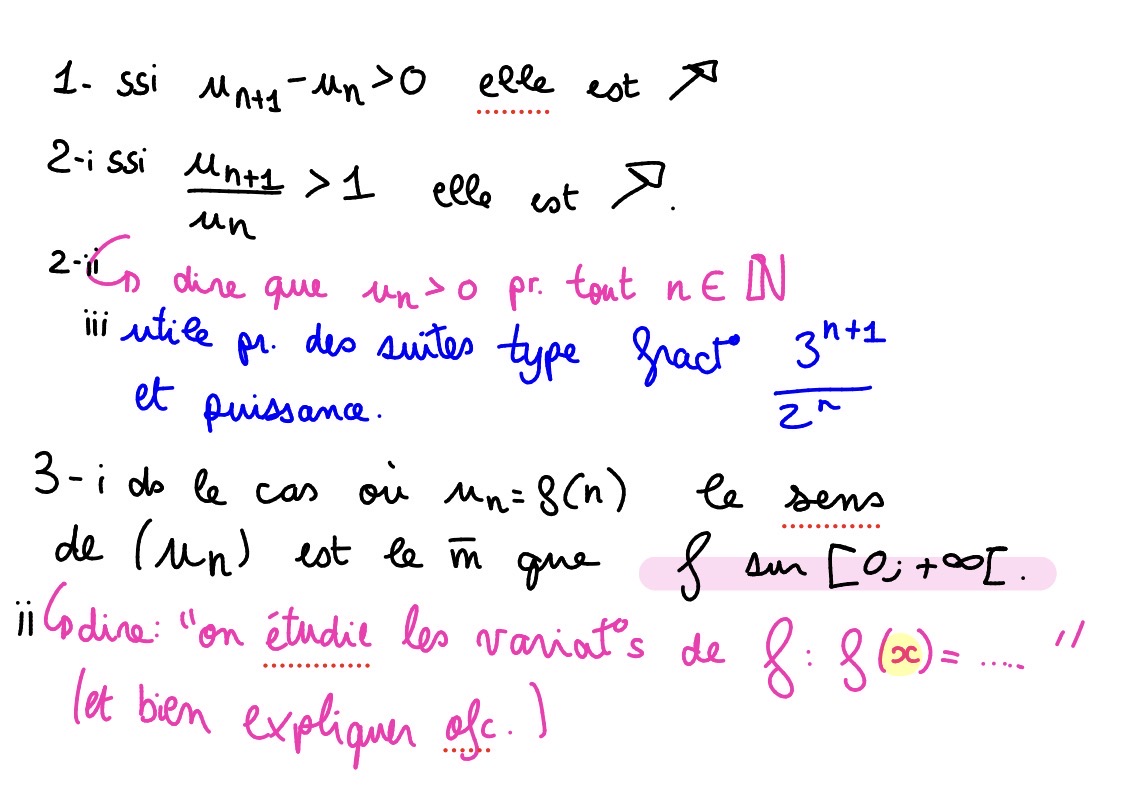 1- ssi u_{n+1} - u_n > 0 elle est ↗
2-i ssi u_{n+1}/u_n > 1 elle est ↗.
2-ii ↳ dire que u_n > 0 pr. tout n ∈ ℕ
iii utile pr. des suites type fract° 3^{n+1}/2^n
et puissance.
3-i ds le cas où u_n = f(n) le sens
de (u_n) est le m̄ que f sur [0; +∞[.
ii ↳ dire: "on étudie les variat°s de f : f(x) = ..... "
(et bien expliquer ofc.)